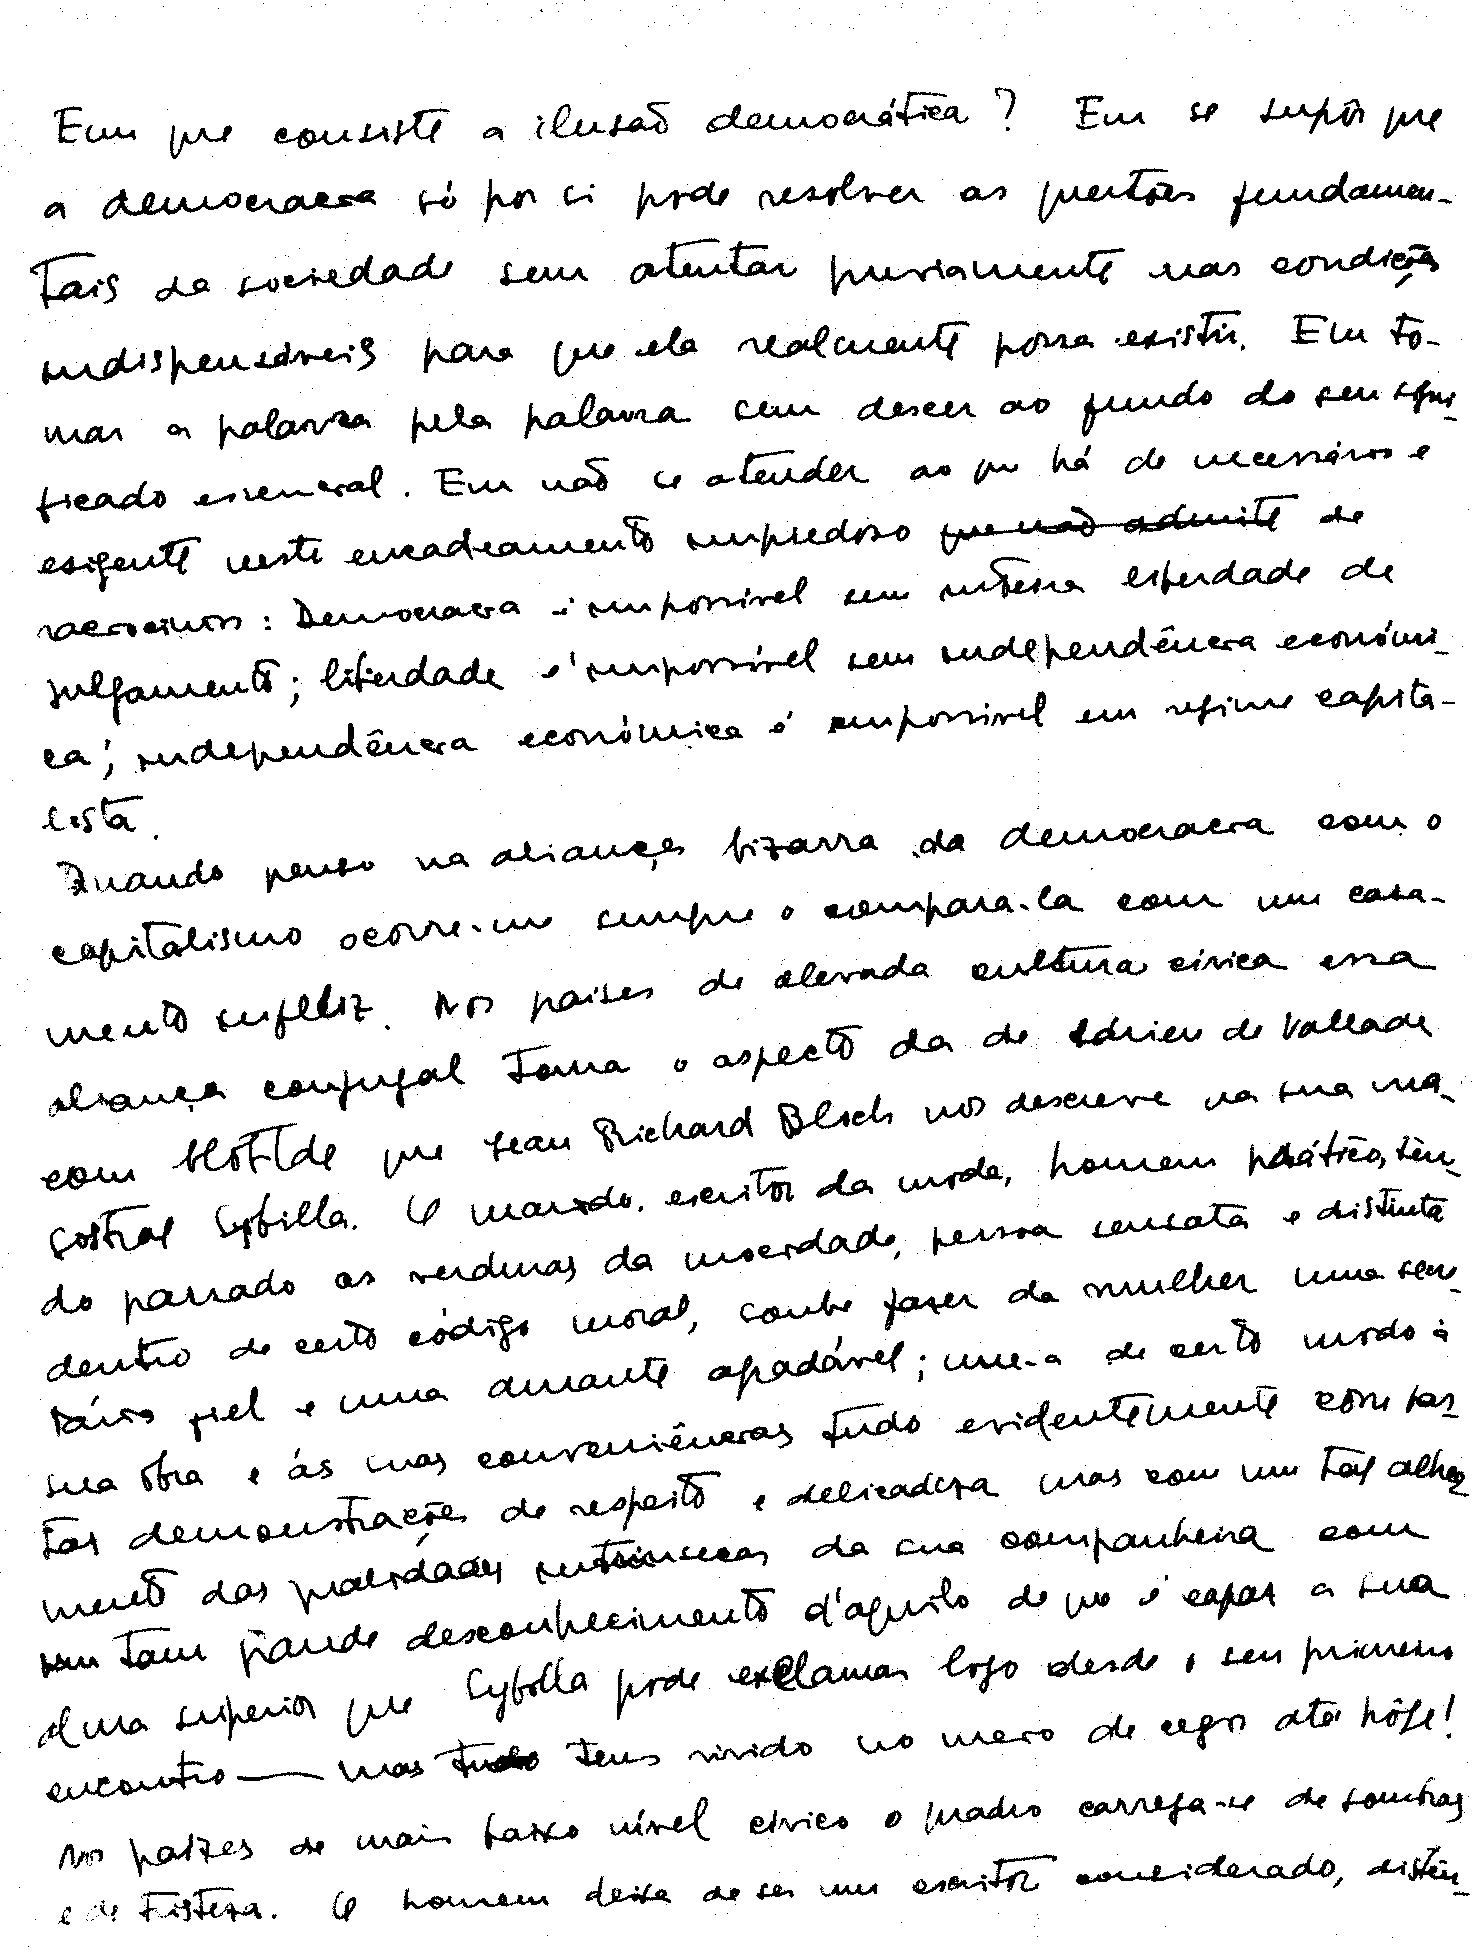 Em que consiste a ilusão democrática? Em se supôr que
a democracia só por si pode resolver as questões fundamen-
tais da sociedade sem atentar previamente nas condições
indispensáveis para que ela realmente possa existir. Em to-
mar a palavra pela palavra sem descer ao fundo do seu signi-
ficado essencial. Em não se atender ao que há de necessário e
exigente neste encadeamento impiedoso que não admite de
raciocinios: Democracia é impossivel sem inteira liberdade de
julgamento; liberdade é impossível sem independência económi-
ca; independência económica é impossivel em regime capita-
lista.
Quando penso na aliança bizarra da democracia com o
capitalismo ocorre-me sempre o compara-la com um casa-
mento infeliz. Nos paises de elevada cultura civica essa
aliança conjugal toma o aspecto da de Adrien de Vallade
com Clotilde que Jean Richard Bloch nos descreve na sua ma-
gistral Sybilla. O marido, escritor da moda, homem prático, ten-
do passado as verduras da mocidade, pessoa sensata e distinta
dentro de certo código moral, soube fazer da mulher uma secre-
tária fiel e uma amante agradável; une-a de certo modo à
sua obra e ás suas conveniências tudo evidentemente com bas-
tas demonstrações de respeito e delicadesa mas com um tal alhea-
mento das qualidades intrinsecas da sua companheira com
um tam grande desconhecimento d'aquilo de que é capaz a sua
alma superior que Sybilla pode exclamar logo desde o seu primeiro
encontro — mas tu tens vivido no meio de cegos até hôje!
Nos paizes de mais baixo nível civico o quadro carrega-se de sombras
e de tristeza. O homem deixa de ser um escritor considerado, distin-